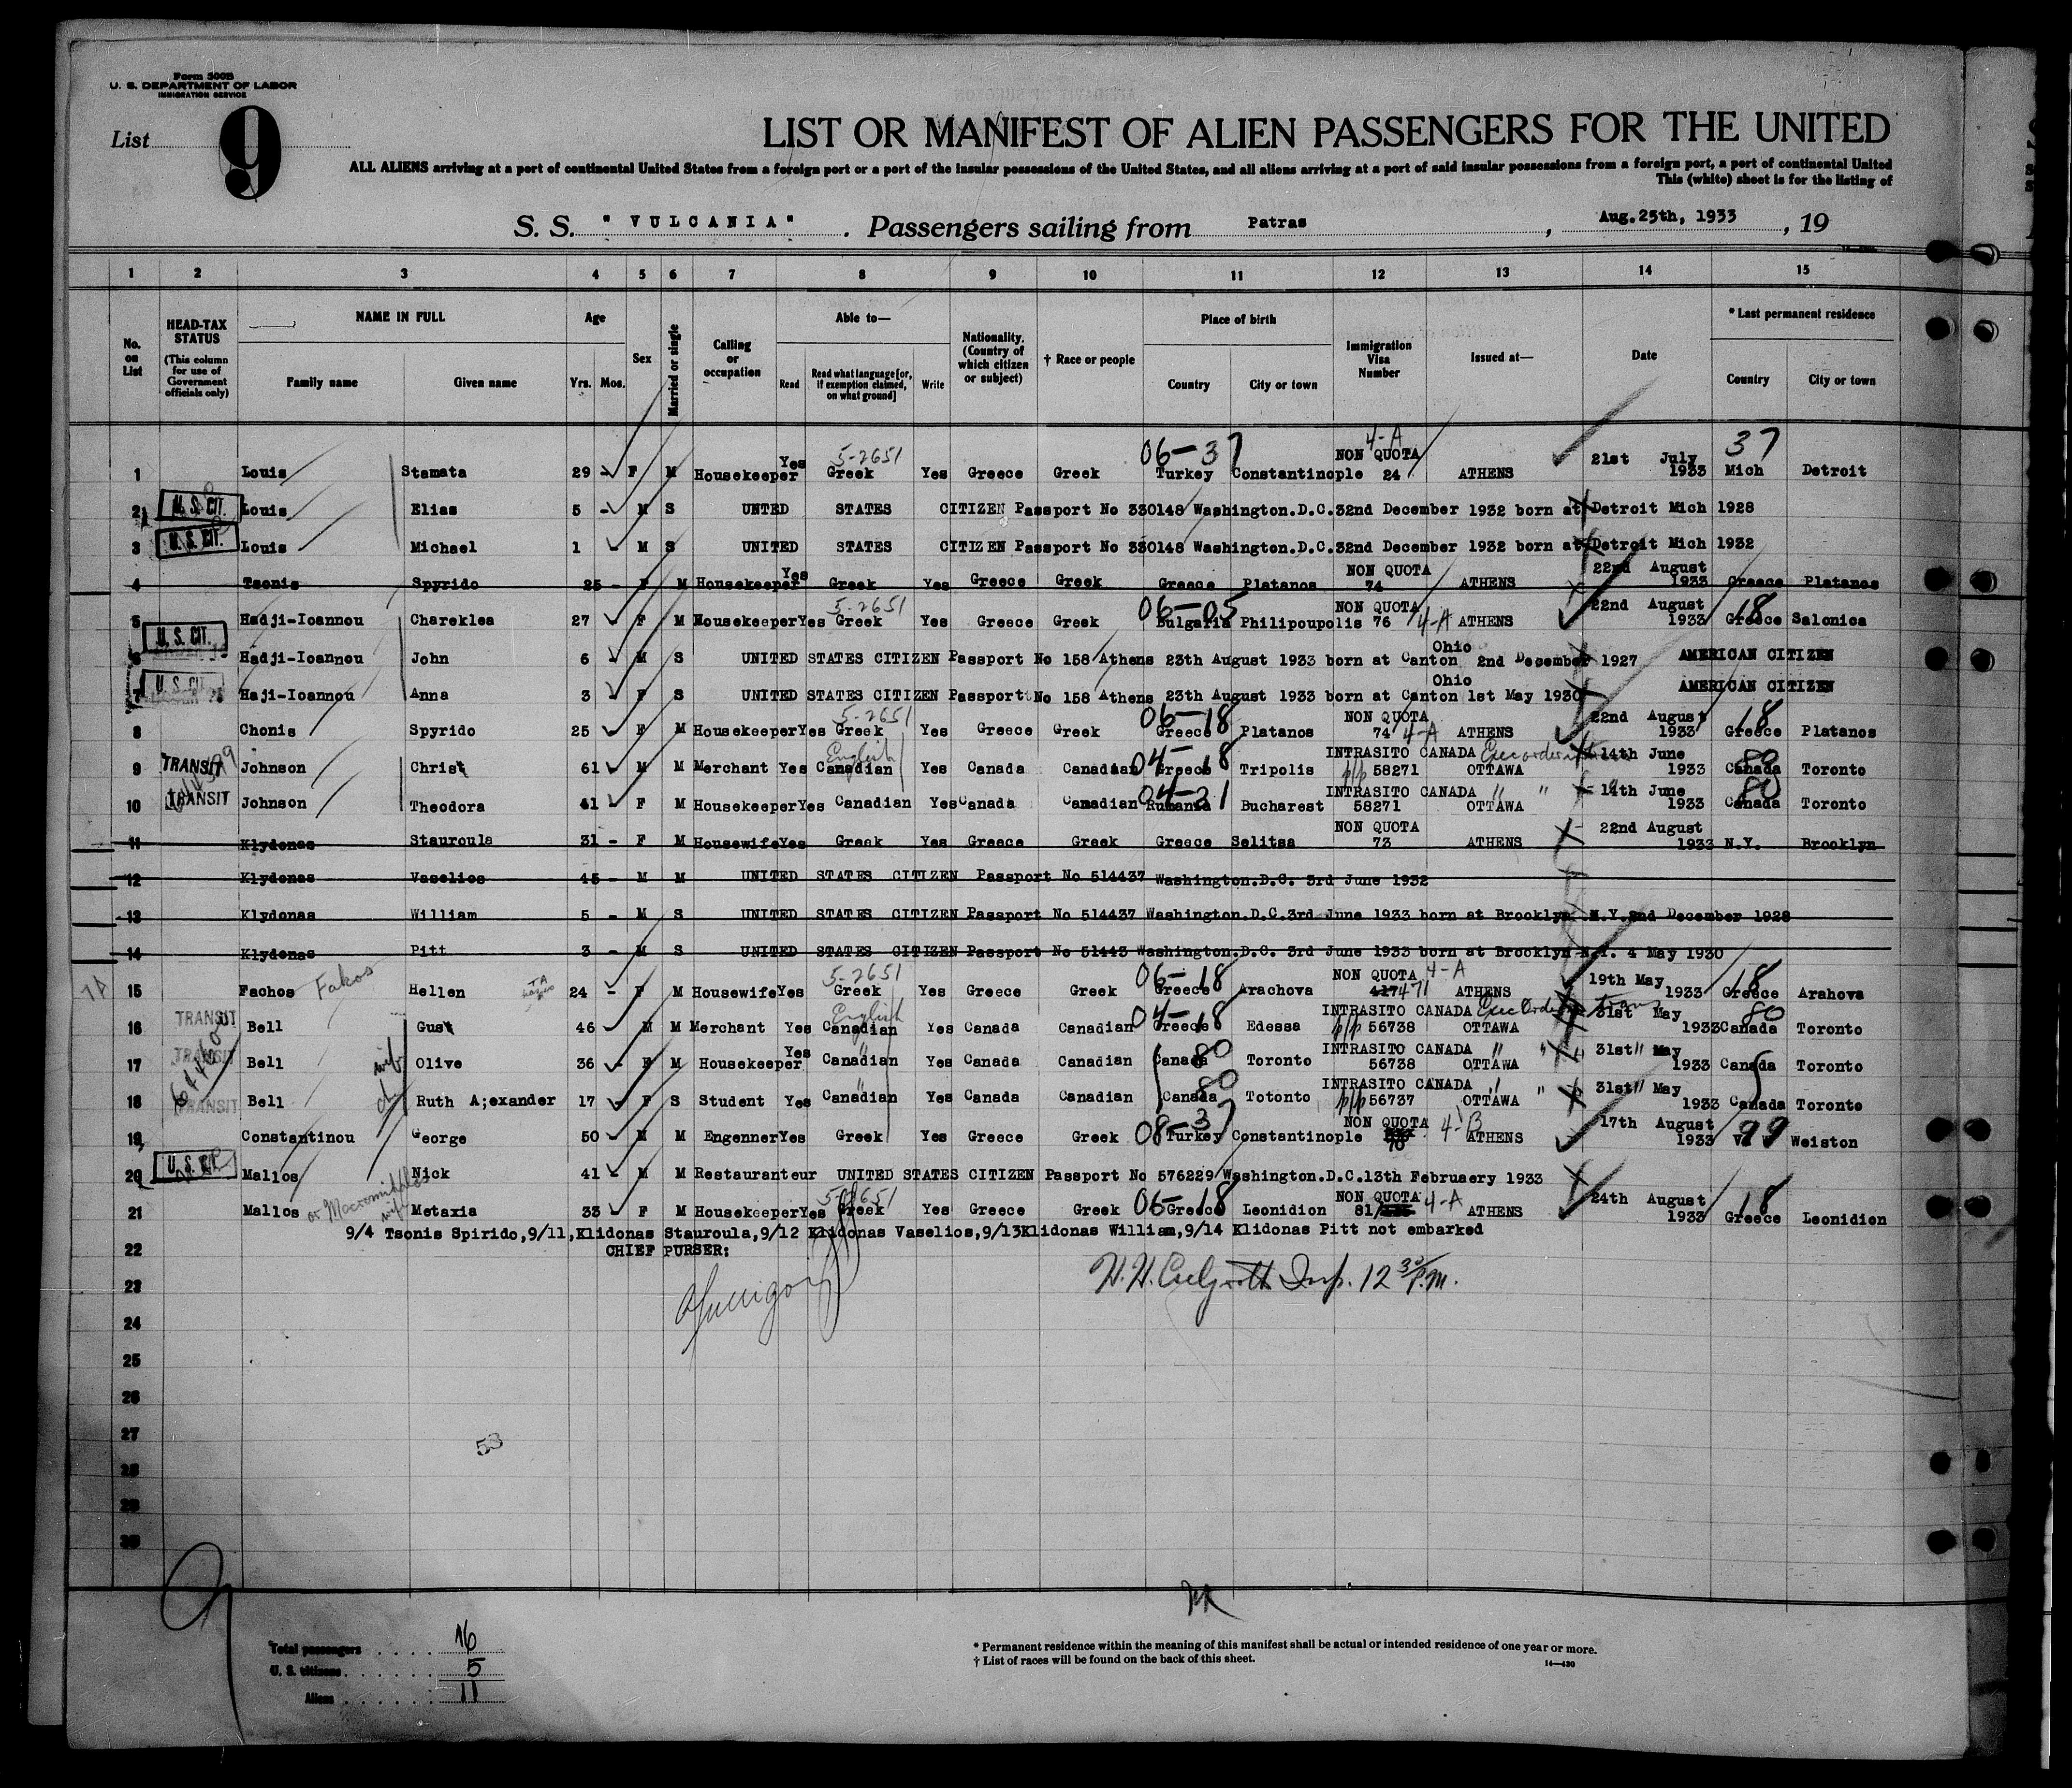 Form 500B
U. S. DEPARTMENT OF LABOR
IMMIGRATION SERVICE
List 9
LIST OR MANIFEST OF ALIEN PASSENGERS FOR THE UNITED
ALL ALIENS arriving at a port of continental United States from a foreign port or a port of the insular possessions of the United States, and all aliens arriving at a port of said insular possessions from a foreign port, a port of continental United
This (white) sheet is for the listing of
S. S. "VULCANIA". Passengers sailing from Patras, Aug.25th, 1933, 19
1 2 3 4 5 6 7 8 9 10 11 12 13 14 15
No. on List
HEAD-TAX STATUS (This column for use of Government officials only)
NAME IN FULL Family name Given name
Age Yrs. Mos.
Sex
Married or single
Calling or occupation
Able to— Read Read what language [or, if exemption claimed, on what ground] Write
Nationality. (Country of which citizen or subject)
† Race or people
Place of birth Country City or town
Immigration Visa Number
Issued at—
Date
* Last permanent residence Country City or town
5-2651 06-37 4-A 37
1 Louis Stamata 29 - F M Housekeeper Yes Greek Yes Greece Greek Turkey Constantinople NON QUOTA 24 ATHENS 21st July 1933 Mich Detroit
2 U. S. CIT. Louis Elias 5 - M S UNTED STATES CITIZEN Passport No 330148 Washington.D.C.32nd December 1932 born at Detroit Mich 1928
3 U. S. CIT. Louis Michael 1 - M S UNITED STATES CITIZEN Passport No 330148 Washington.D.C.32nd December 1932 born at Detroit Mich 1932
4 Tsonis Spyrido 25 - F M Housekeeper Yes Greek Yes Greece Greek Greece Platanos NON QUOTA 74 ATHENS 22nd August 1933 Greece Platanos
5-2651 06-05 4-A 18
5 Hadji-Ioannou Chareklea 27 F M Housekeeper Yes Greek Yes Greece Greek Bulgaria Philipoupolis NON QUOTA 76 ATHENS 22nd August 1933 Greece Salonica
6 U. S. CIT. Hadji-Ioannou John 6 M S UNITED STATES CITIZEN Passport No 158 Athens 23th August 1933 born at Canton Ohio 2nd December 1927 AMERICAN CITIZEN
7 U. S. CIT. Haji-Ioannou Anna 3 F S UNITED STATES CITIZEN Passport No 158 Athens 23th August 1933 born at Canton Ohio 1st May 1930 AMERICAN CITIZEN
5-2651 06-18 4-A 18
8 Chonis Spyrido 25 F M Housekeeper Yes Greek Yes Greece Greek Greece Platanos NON QUOTA 74 ATHENS 22nd August 1933 Greece Platanos
English 04-18 80
9 TRANSIT Johnson Christ 61 M M Merchant Yes Canadian Yes Canada Canadian Greece Tripolis INTRASITO CANADA p/p 58271 OTTAWA 14th June 1933 Canada Toronto
04-21 80
10 TRANSIT Johnson Theodora 41 F M Housekeeper Yes Canadian Yes Canada Canadian Rumania Bucharest INTRASITO CANADA " " 58271 OTTAWA 14th June 1933 Canada Toronto
11 Klydonas Stauroula 31 - F M Housewife Yes Greek Yes Greece Greek Greece Selitsa NON QUOTA 73 ATHENS 22nd August 1933 N.Y. Brooklyn
12 Klydonas Vaselios 45 - M M UNITED STATES CITIZEN Passport No 514437 Washington.D.C. 3rd June 1932
13 Klydonas William 5 - M S UNITED STATES CITIZEN Passport No 514437 Washington.D.C.3rd June 1933 born at Brooklyn .N.Y.2nd December 1928
14 Klydonas Pitt 3 - M S UNITED STATES CITIZEN Passport No 51443 Washington.D.C. 3rd June 1933 born at Brooklyn N.Y. 4 May 1930
Fakos 5-2651 06-18 4-A 18
15 Fachos Hellen 24 - F M Housewife Yes Greek Yes Greece Greek Greece Arachova NON QUOTA 417 471 ATHENS 19th May 1933 Greece Arahova
English 04-18 80
16 TRANSIT Bell Gust 46 M M Merchant Yes Canadian Yes Canada Canadian Greece Edessa INTRASITO CANADA p/p 56738 OTTAWA 31st May 1933 Canada Toronto
17 TRANSIT Bell wife Olive 36 - F M Housekeeper Yes Canadian Yes Canada Canadian Canada 80 Toronto INTRASITO CANADA " " 56738 OTTAWA 31st May 1933 Canada Toronto
18 TRANSIT Bell Ruth A;exander 17 - F S Student Yes Canadian Yes Canada Canadian Canada 80 Totonto INTRASITO CANADA " " p/p 56737 OTTAWA 31st May 1933 Canada Toronto
08-37 4-B 99
19 Constantinou George 50 M M Engenner Yes Greek Yes Greece Greek Turkey Constantinople NON QUOTA 70 ATHENS 17th August 1933 Weiston
20 U. S. CIT. Mallos Nick 41 - M M Restauranteur UNITED STATES CITIZEN Passport No 576229 Washington.D.C.13th Februaery 1933
wife 5-2651 06-18 4-A 18
21 Mallos Metaxia 33 F M Housekeeper Yes Greek Yes Greece Greek Greece Leonidion NON QUOTA 81/ ATHENS 24th August 1933 Greece Leonidion
9/4 Tsonis Spirido,9/11,Klidonas Stauroula,9/12 Klidonas Vaselios,9/13Klidonas William,9/14 Klidonas Pitt not embarked
22 CHIEF PURSER:
23 Insp. 12 30 P.M.
24
25
26
27
53
28
29
30
Total passengers 16
U. S. citizens 5
Aliens 11
* Permanent residence within the meaning of this manifest shall be actual or intended residence of one year or more.
† List of races will be found on the back of this sheet.
14—430